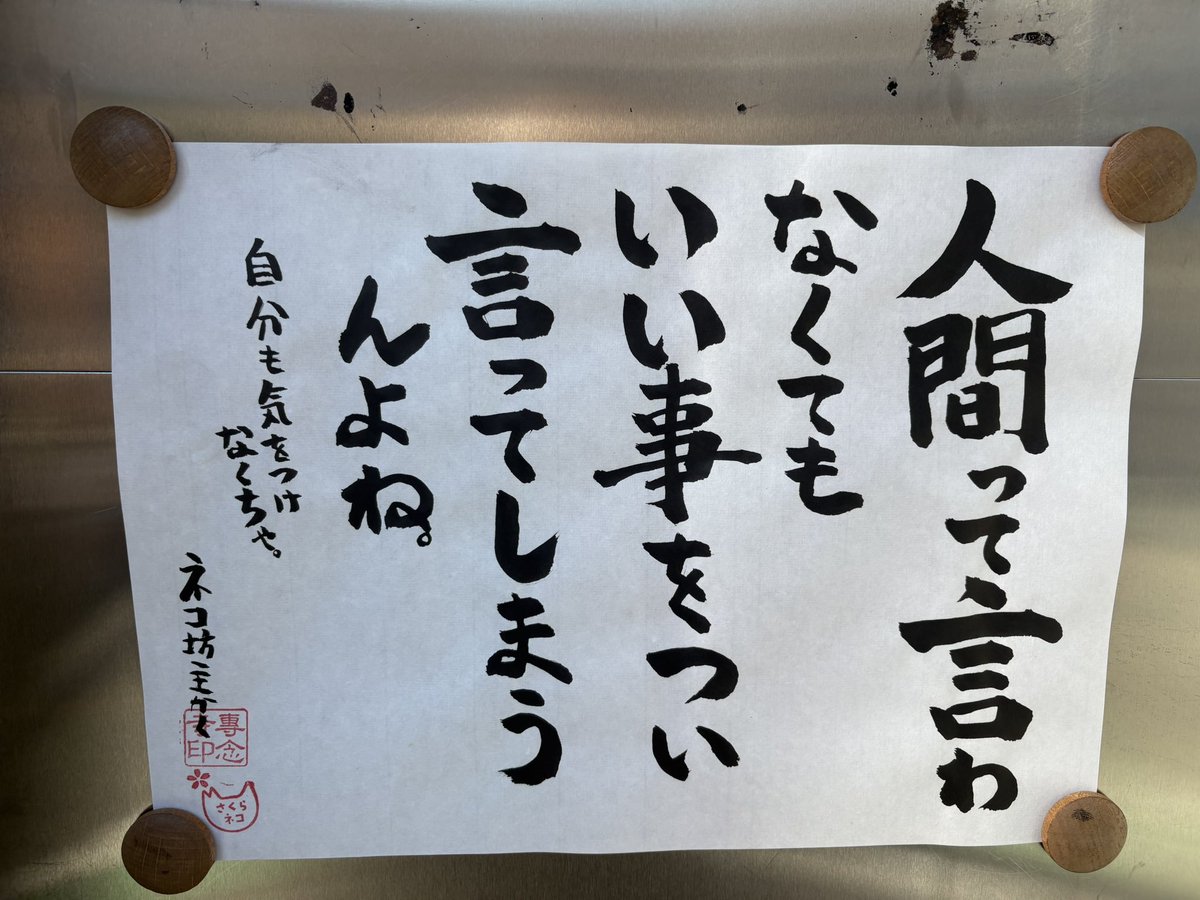 人間って言わ
なくても
いい事をつい
言ってしまう
んよね。
自分も気をつけ
なくちゃ。
ネコ坊主かく
專念
寺印
さくら
ネコ